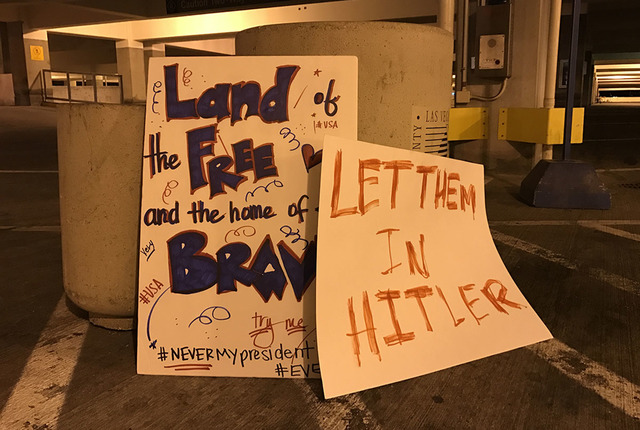 Land of
#USA
the FREE
and the home of
Very BRAV
#USA
try me
#NEVERMYpresident
#EVE
LET THEM
IN
HITLER
LAS VE
NTY